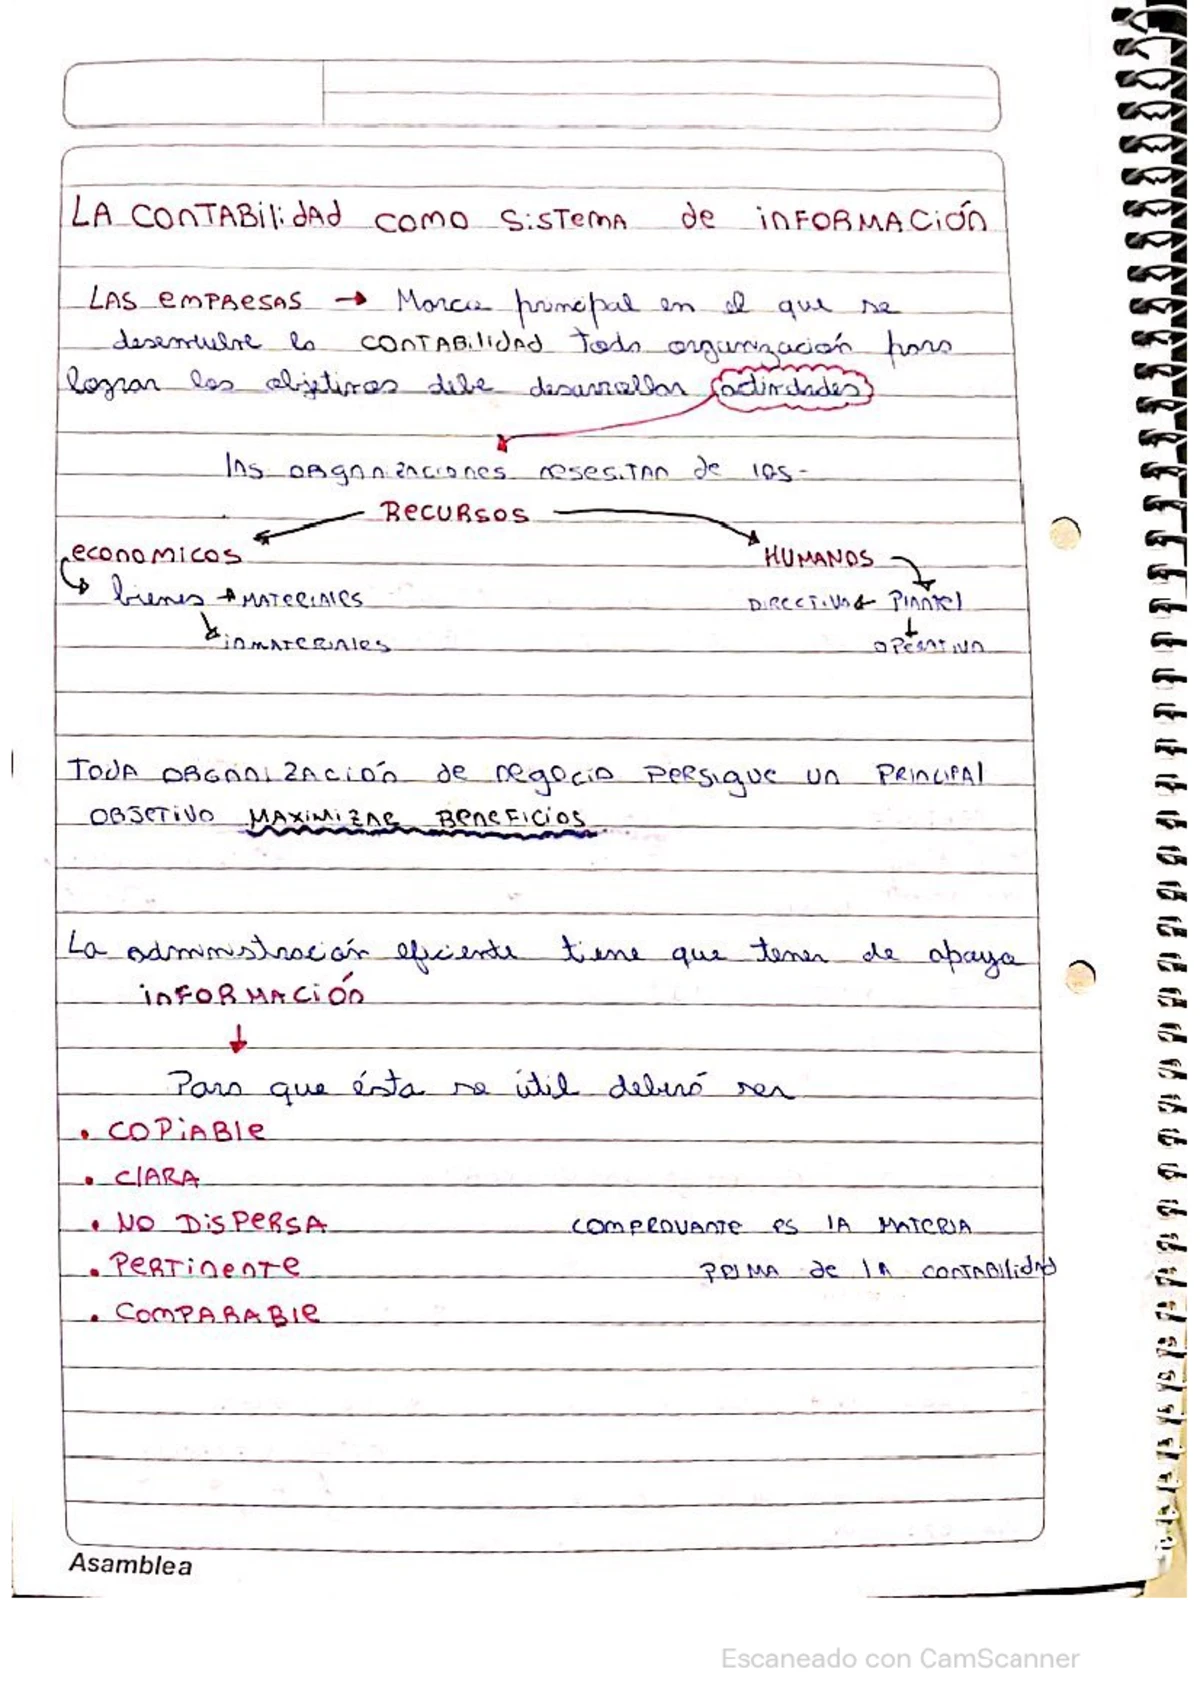 LA CONTABILIDAD COMO SISTEMA de INFORMACIÓN
LAS EMPRESAS → Marco principal en el que se
desenvuelve la CONTABILIDAD Toda organización para
lograr los objetivos debe desarrollar actividades
las ORGANIZACIONES nesesitan de los-
RECURSOS
economicos HUMANOS
bienes → MATERIALES DIRECTIVO ← Plantel
INMATERIALES OPERATIVO
TODA ORGANIZACIÓN de negocio PERSIGUE UN PRINCIPAL
OBJETIVO MAXIMIZAR BENEFICIOS
La administración eficiente tiene que tener de apoyo
INFORMACIÓN
Para que ésta se útil deberá ser
• COPIABLE
• CLARA
• NO DISPERSA COMPROVANTE ES LA MATERIA
• PERTINENTE PRIMA de LA CONTABILIDAD
• COMPARABLE
Asamblea
Escaneado con CamScanner